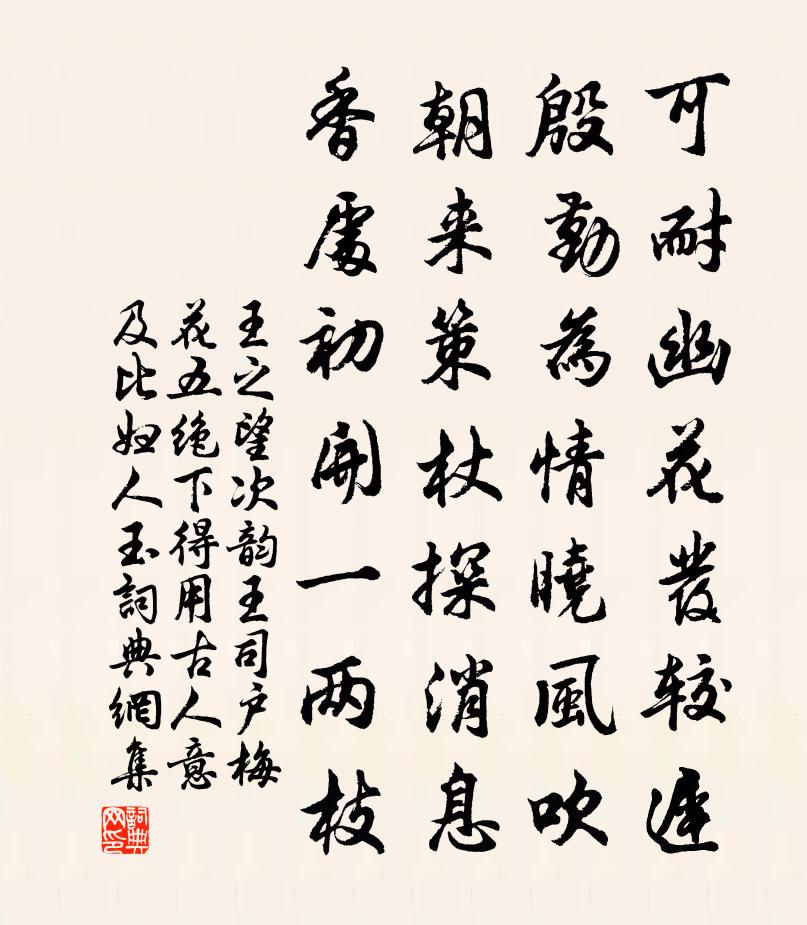 可耐幽花發较遲
殷勤為情曉風吹
朝来策杖探消息
香處初開一两枝
王之望次韵王司户梅
花五绝下得用古人意
及比妇人玉詞典網集
詞典网印